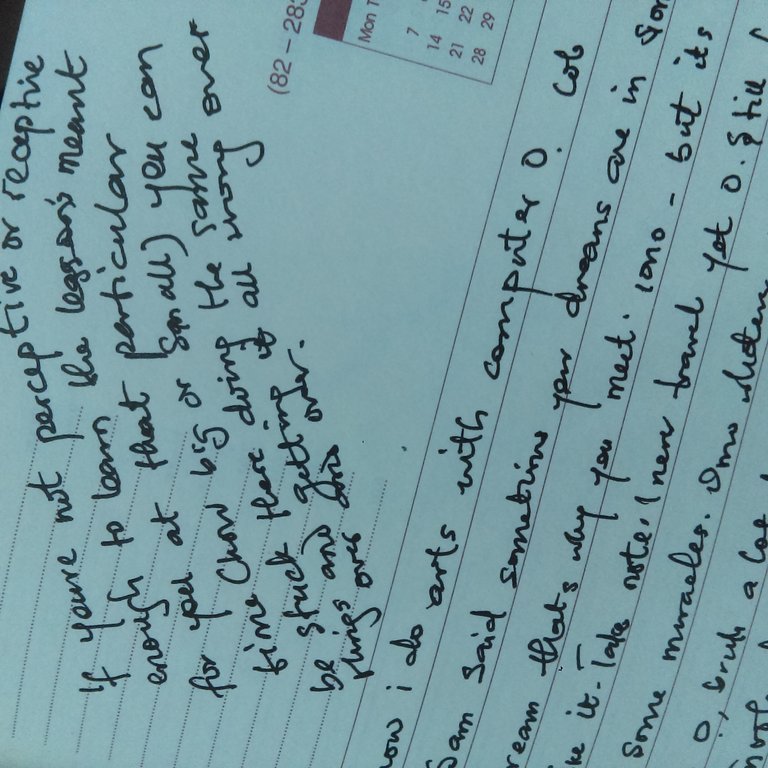 If you're not perceptive or receptive
enough to learn the lessons meant
for you at that particular
time (how big or small) you can
be stuck there doing the same over
things and getting it all wrong
over and order.
(82-283
Mon T
7
14 15
21 22
28 29
now i do arts with computer O. Cob
Sam said sometimes your dreams are in
ream that's why you meet. iono - but its
ke it - Take note. I never travel yet O. Still
Some miracles. Iono
O, bruh a lot